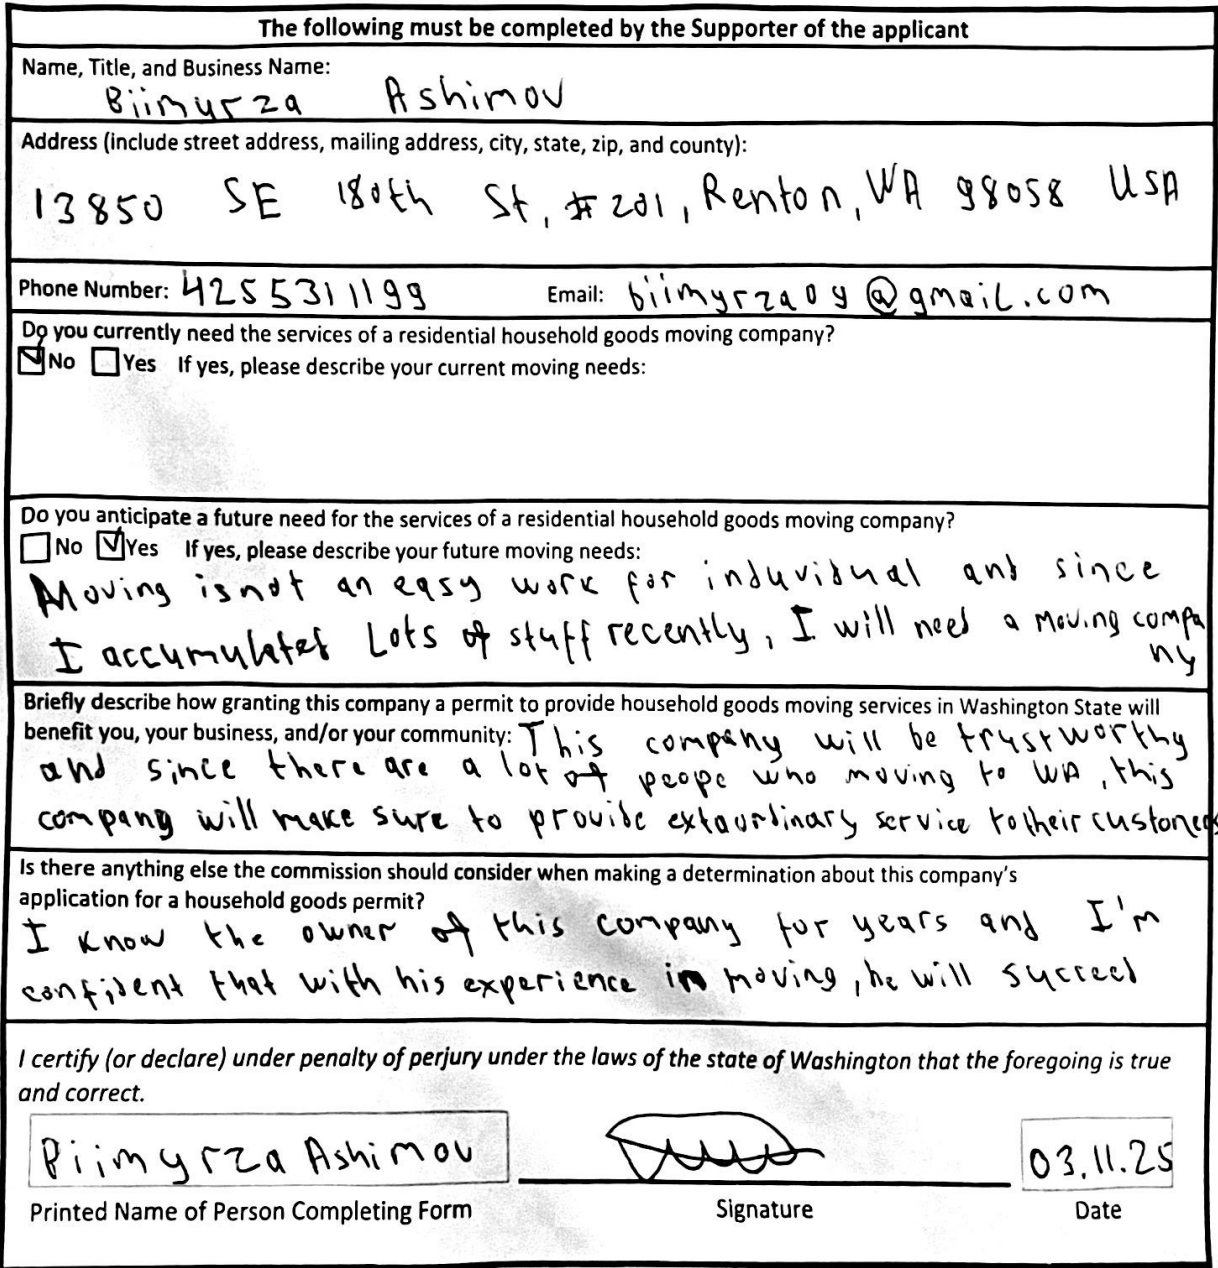 The following must be completed by the Supporter of the applicant
Name, Title, and Business Name:
Biimyrza Ashimov
Address (include street address, mailing address, city, state, zip, and county):
13850 SE 180th St, #201, Renton, WA 98058 USA
Phone Number: 4255311199 Email: biimyrza09@gmail.com
Do you currently need the services of a residential household goods moving company?
☑ No ☐ Yes If yes, please describe your current moving needs:
Do you anticipate a future need for the services of a residential household goods moving company?
☐ No ☑ Yes If yes, please describe your future moving needs:
Moving is not an easy work for induvidual and since
I accumulated Lots of stuff recently, I will need a moving compa
ny
Briefly describe how granting this company a permit to provide household goods moving services in Washington State will
benefit you, your business, and/or your community: This company will be trustworthy
and since there are a lot of peope who moving to WA, this
company will make sure to provide extaordinary service to their customers
Is there anything else the commission should consider when making a determination about this company's
application for a household goods permit?
I know the owner of this company for years and I'm
confident that with his experience in moving, he will succeed
I certify (or declare) under penalty of perjury under the laws of the state of Washington that the foregoing is true
and correct.
Biimyrza Ashimov 03.11.25
Printed Name of Person Completing Form Signature Date